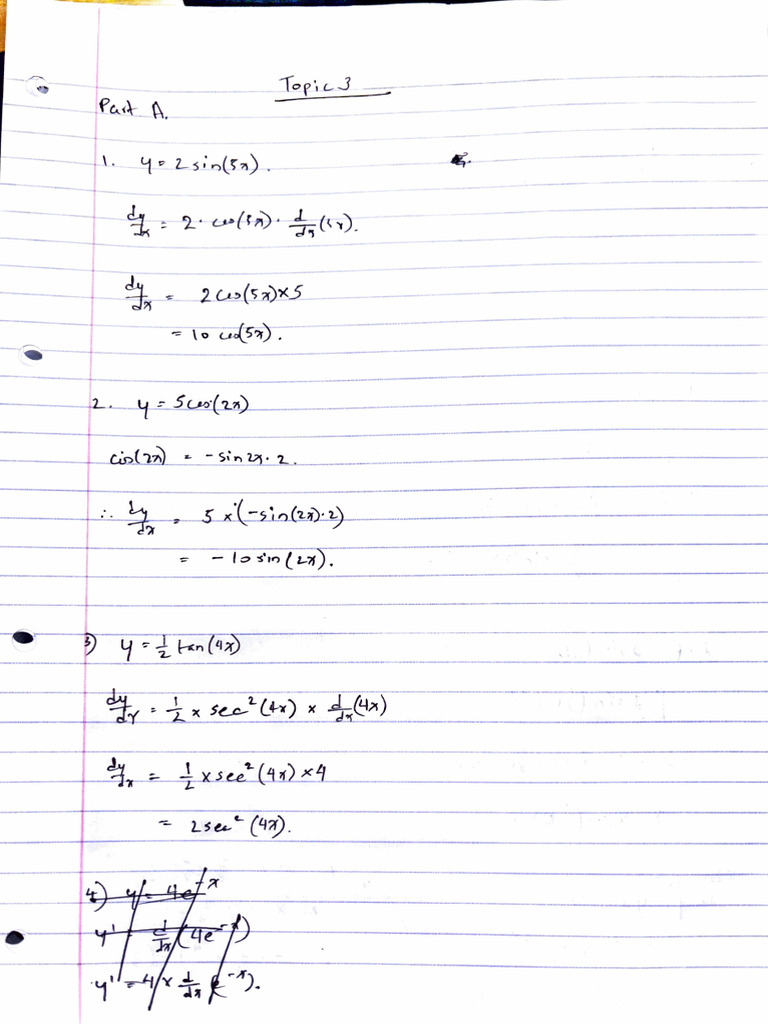 Topic 3
Part A.
1. y = 2 sin(5x).
dy/dx = 2 · cos(5x) · d/dx (5x).
dy/dx = 2 cos(5x) × 5
= 10 cos(5x).
2. y = 5 cos(2x)
cos(2x) = - sin 2x · 2.
∴ dy/dx = 5 × (-sin(2x)·2)
= - 10 sin (2x).
3) y = 1/2 tan(4x)
dy/dx = 1/2 × sec² (4x) × d/dx (4x)
dy/dx = 1/2 × sec² (4x) × 4
= 2 sec² (4x).
4) y = 4e^-x
y' = d/dx (4e^-x)
y' = 4 × d/dx (e^-x).